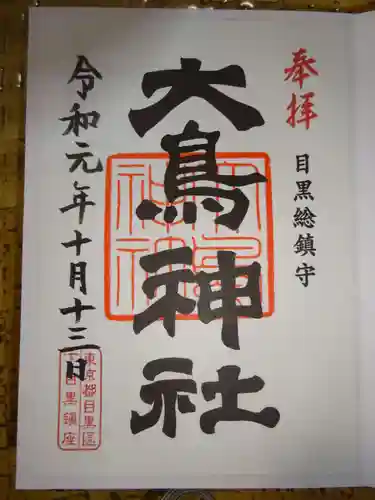 奉拝
目黒総鎮守
大鳥神社
令和元年十月十三日
東京都目黒区
下目黒鎮座